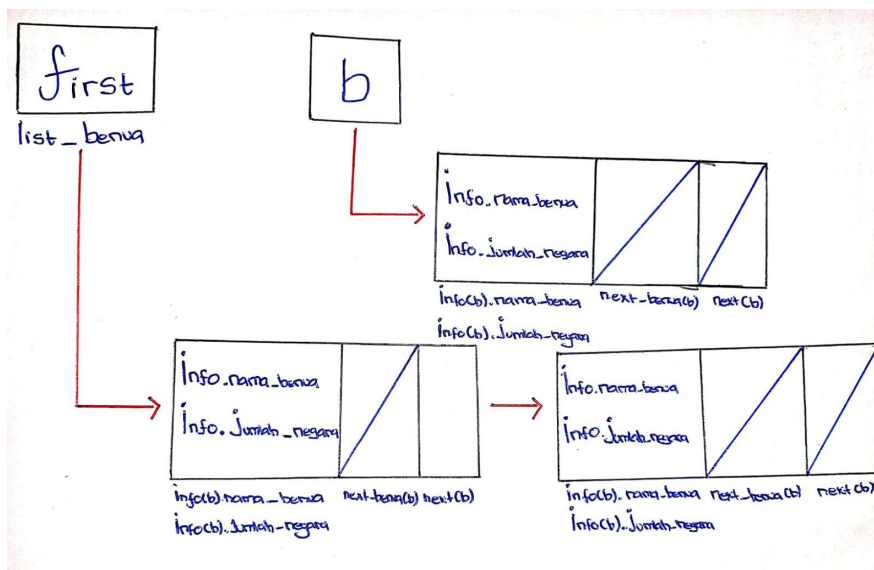 first
list_benua
b
info.nama_benua
info.jumlah_negara
info(b).nama_benua next_benua(b) next(b)
info(b).jumlah_negara
info.nama_benua
info.jumlah_negara
info(b).nama_benua next_benua(b) next(b)
info(b).jumlah_negara
info.nama_benua
info.jumlah_negara
info(b).nama_benua next_benua(b) next(b)
info(b).jumlah_negara